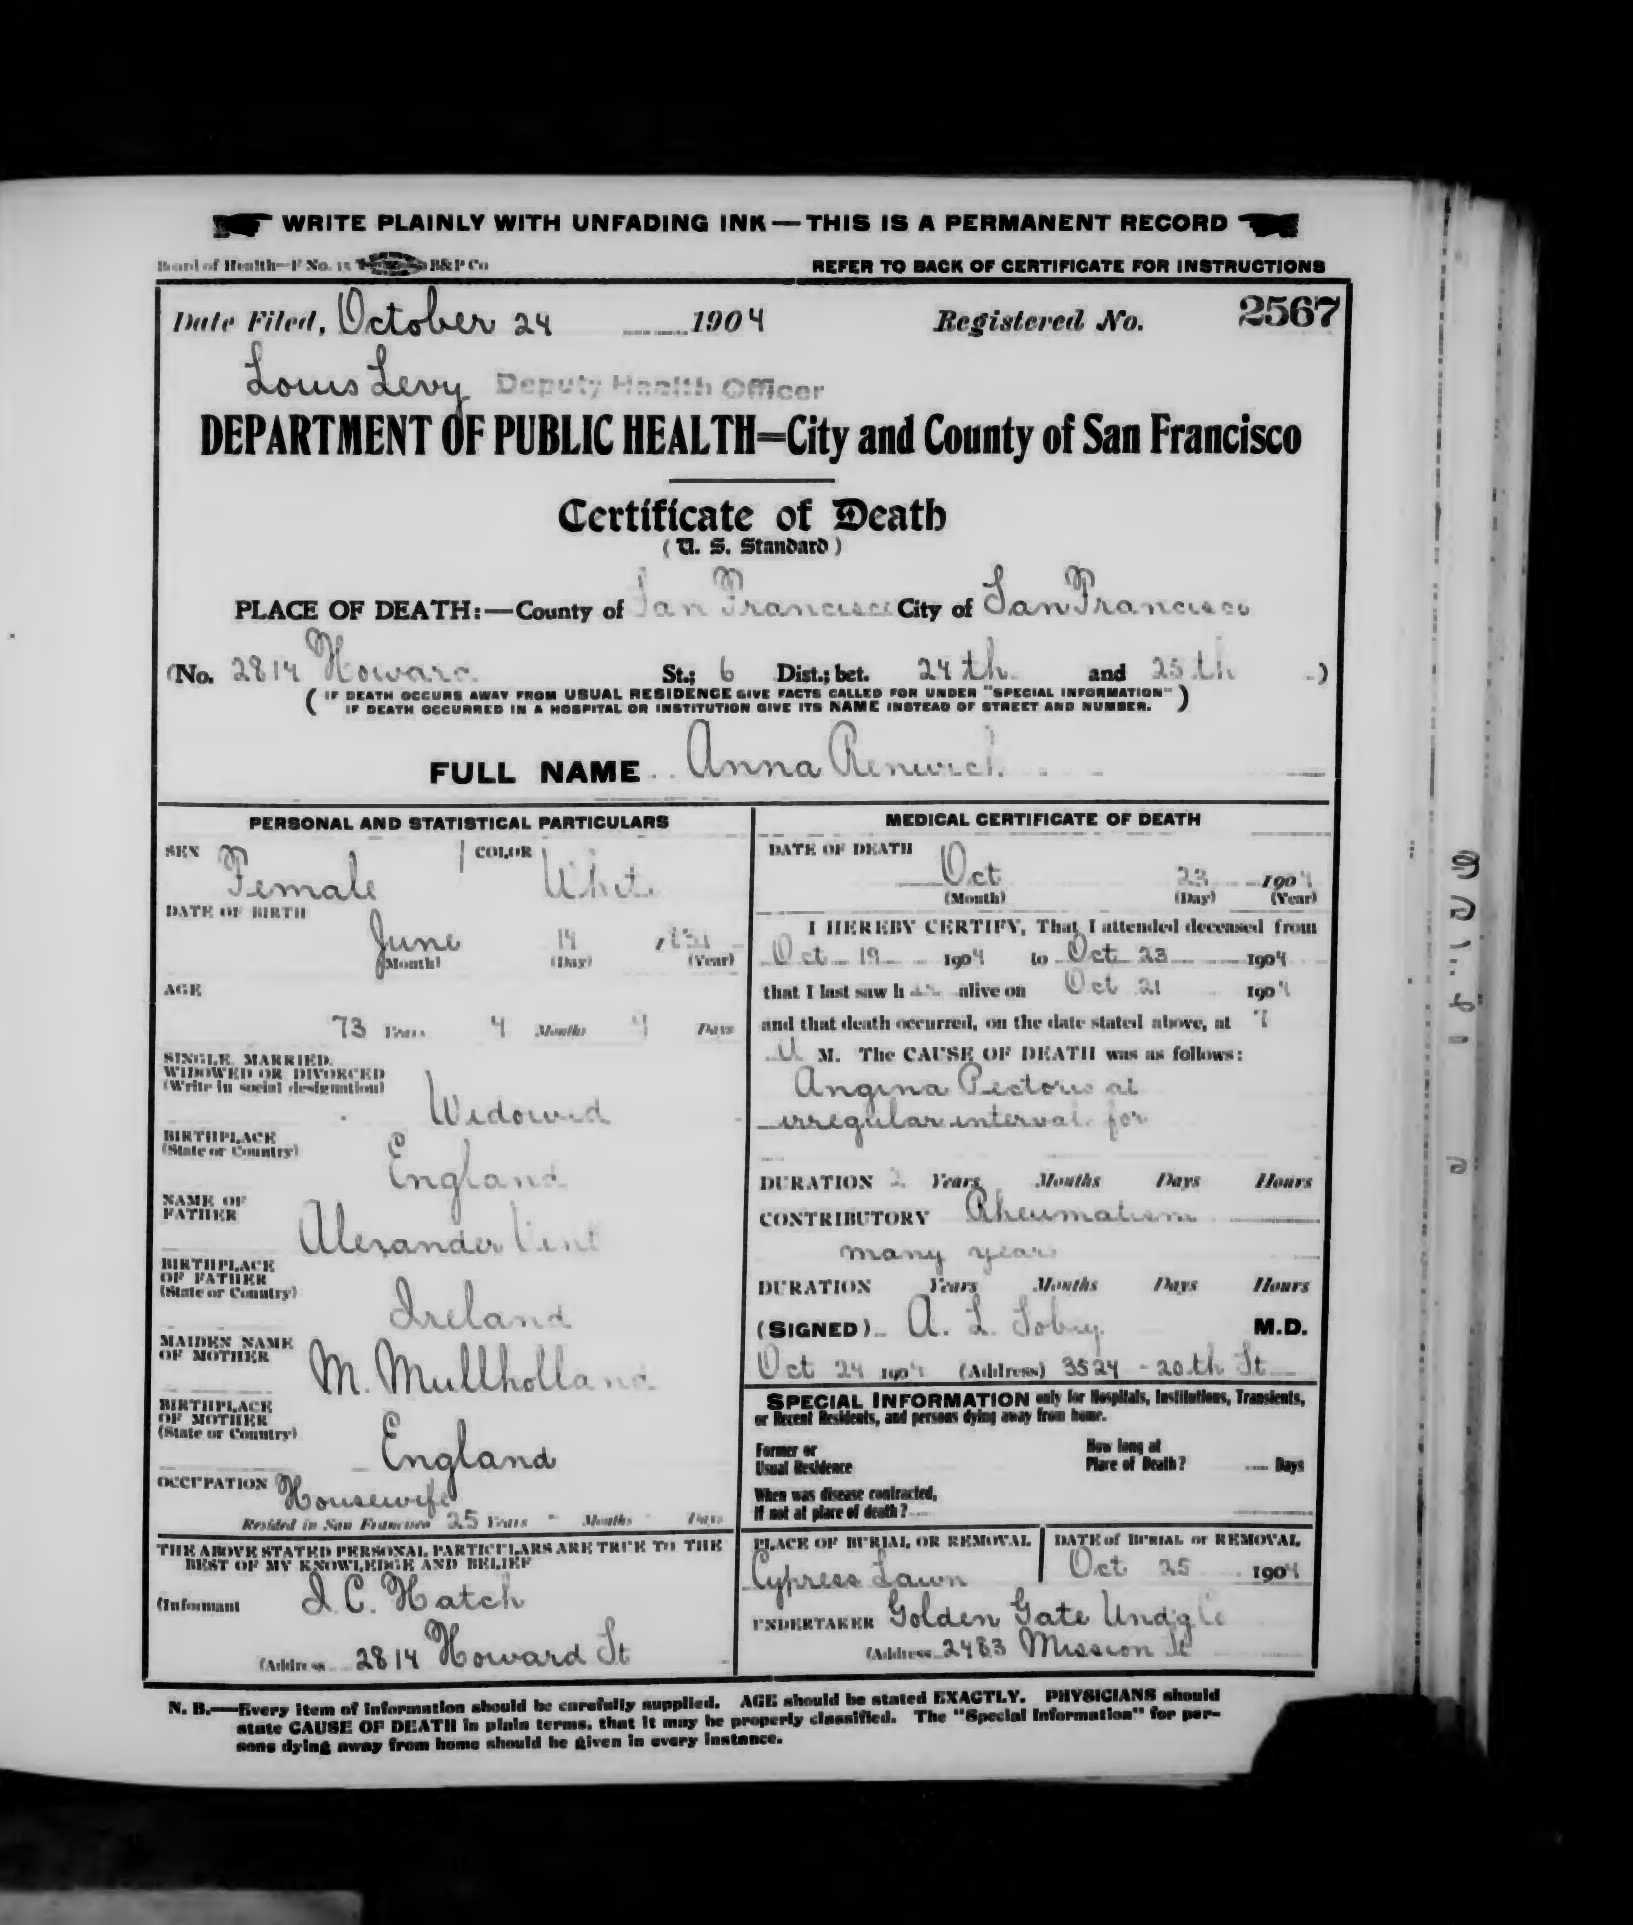 WRITE PLAINLY WITH UNFADING INK—THIS IS A PERMANENT RECORD
Board of Health—F No. 15 B&P Co REFER TO BACK OF CERTIFICATE FOR INSTRUCTIONS
Date Filed, October 24 1904 Registered No. 2567
Louis Levy Deputy Health Officer
DEPARTMENT OF PUBLIC HEALTH=City and County of San Francisco
Certificate of Death
(U. S. Standard)
PLACE OF DEATH:—County of San Francisco City of San Francisco
(No. 2814 Howard St.; 6 Dist.; bet. 24th and 25th)
(IF DEATH OCCURS AWAY FROM USUAL RESIDENCE GIVE FACTS CALLED FOR UNDER "SPECIAL INFORMATION"
IF DEATH OCCURRED IN A HOSPITAL OR INSTITUTION GIVE ITS NAME INSTEAD OF STREET AND NUMBER.)
FULL NAME Anna Renwick
PERSONAL AND STATISTICAL PARTICULARS
SEX Female COLOR White
DATE OF BIRTH
June 19
(Month) (Day) (Year)
AGE
73 Years 4 Months 4 Days
SINGLE, MARRIED,
WIDOWED OR DIVORCED
(Write in social designation)
Widowed
BIRTHPLACE
(State or Country)
England
NAME OF
FATHER
Alexander Vint
BIRTHPLACE
OF FATHER
(State or Country)
Ireland
MAIDEN NAME
OF MOTHER
M. Mullholland
BIRTHPLACE
OF MOTHER
(State or Country)
England
OCCUPATION Housewife
Resided in San Francisco 25 Years - Months - Days
THE ABOVE STATED PERSONAL PARTICULARS ARE TRUE TO THE
BEST OF MY KNOWLEDGE AND BELIEF
(Informant I. C. Hatch
(Address 2814 Howard St
MEDICAL CERTIFICATE OF DEATH
DATE OF DEATH
Oct 23 1904
(Month) (Day) (Year)
I HEREBY CERTIFY, That I attended deceased from
Oct 19 1904 to Oct 23 1904
that I last saw h er alive on Oct 21 1904
and that death occurred, on the date stated above, at 7
M. The CAUSE OF DEATH was as follows:
Angina Pectoris at
irregular intervals for
DURATION 2 Years Months Days Hours
CONTRIBUTORY Rheumatism
many years
DURATION Years Months Days Hours
(SIGNED) A. L. Tobey M.D.
Oct 24 1904 (Address) 3524 - 20th St
SPECIAL INFORMATION only for Hospitals, Institutions, Transients,
or Recent Residents, and persons dying away from home.
Former or
Usual Residence
How long at
Place of Death? Days
When was disease contracted,
If not at place of death?
PLACE OF BURIAL OR REMOVAL DATE of BURIAL or REMOVAL
Cypress Lawn Oct 25 1904
UNDERTAKER Golden Gate Undtg Co
(Address 2483 Mission St
N. B.—Every item of information should be carefully supplied. AGE should be stated EXACTLY. PHYSICIANS should
state CAUSE OF DEATH in plain terms, that it may be properly classified. The "Special Information" for per-
sons dying away from home should be given in every instance.